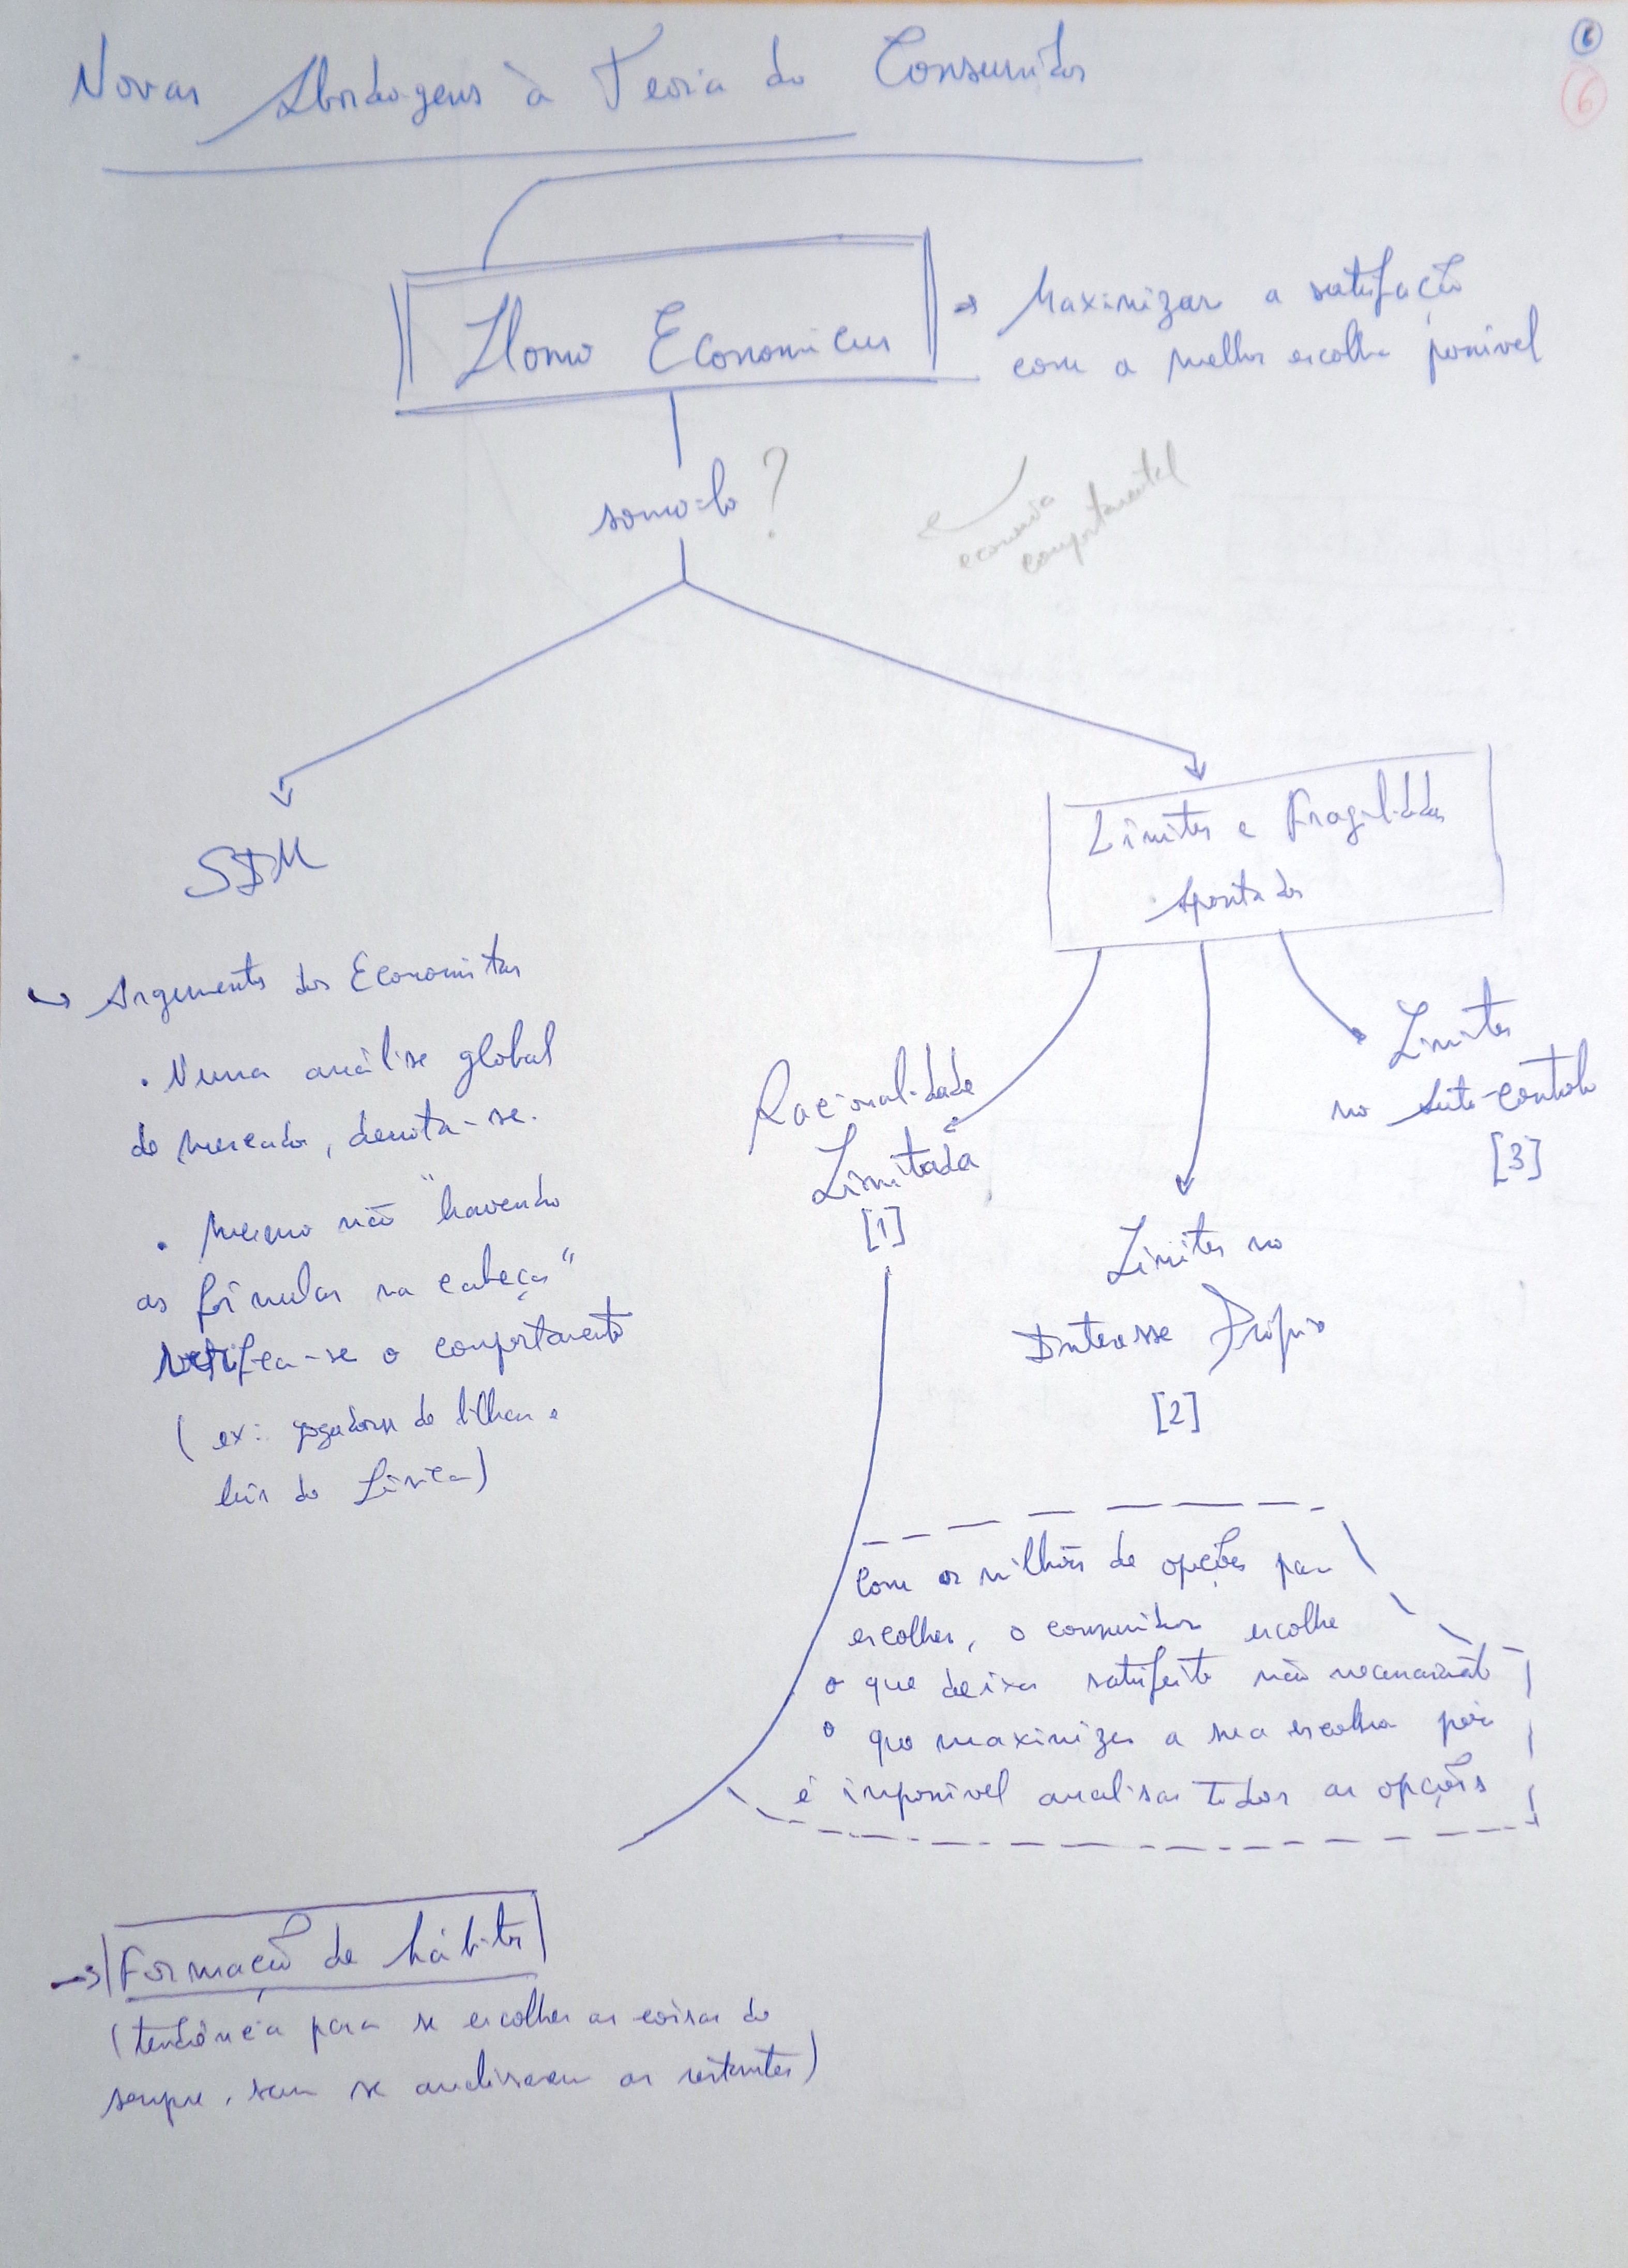 Novas Abordagens à Teoria do Consumidor
6
6
Homo Economicus
→ Maximizar a satisfação
com a melhor escolha possível
somo-lo?
economia
comportamental
SIM
Limites e Fragilidades
Apontados
↳ Argumentos dos Economistas
• Numa análise global
de mercado, denota-se.
• Mesmo não "havendo
as fórmulas na cabeça"
verifica-se o comportamento
(ex: jogadores de bilhar e
leis da Física)
Racionalidade
Limitada
[1]
Limites no
Interesse Próprio
[2]
Limites
no Auto-controlo
[3]
Com os milhões de opções para
escolher, o consumidor escolhe
o que deixa satisfeito não necessariamente
o que maximiza a sua escolha pois
é impossível analisar todas as opções
→ Formação de hábitos
(tendência para se escolher as coisas de
sempre, sem se analisarem as restantes)